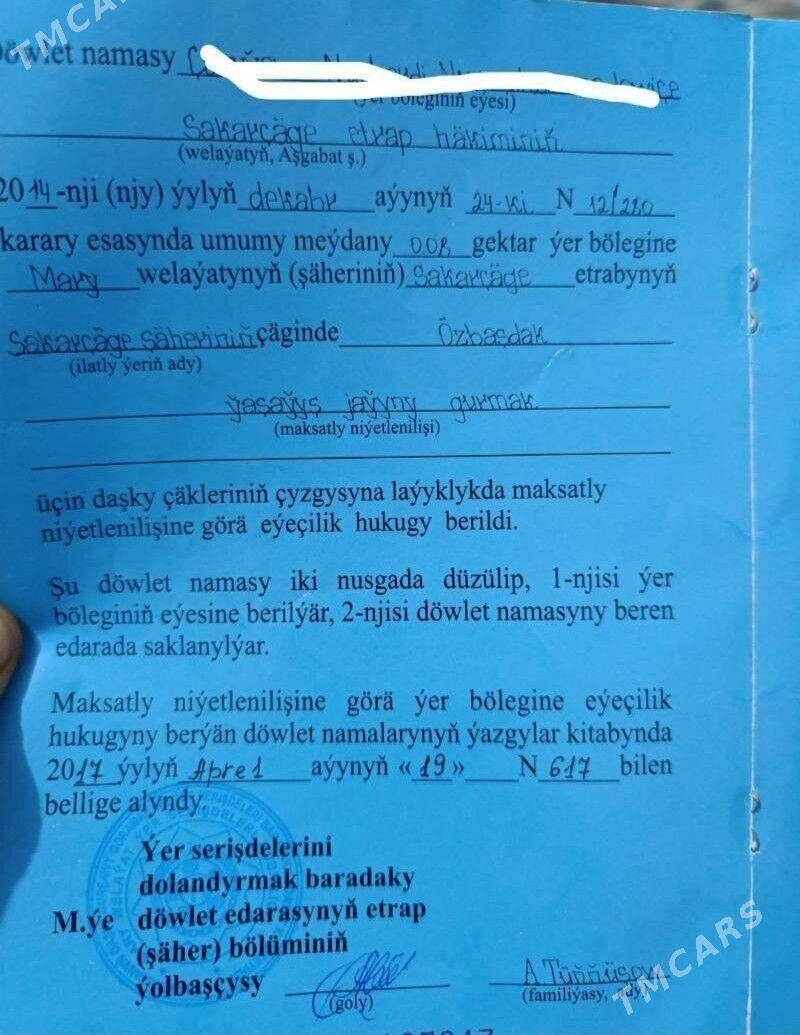 TMCARS
Döwlet namasy
(ýer böleginiň eýesi)
Sakarçäge etrap häkiminiň
(welaýatyň, Aşgabat ş.)
2014-nji (njy) ýylyň dekabr aýynyň 24-ki N 12/280
karary esasynda umumy meýdany 0.08 gektar ýer bölegine
Mary welaýatynyň (şäheriniň) Sakarçäge etrabynyň
Sakarçäge şäheriniň çäginde Özbaşdak
(ilatly ýeriň ady)
ýaşaýyş jaýyny gurmak
(maksatly niýetlenilişi)
üçin daşky çäkleriniň çyzgysyna laýyklykda maksatly
niýetlenilişine görä eýeçilik hukugy berildi.
Şu döwlet namasy iki nusgada düzülip, 1-njisi ýer
böleginiň eýesine berilýär, 2-njisi döwlet namasyny beren
edarada saklanylýar.
Maksatly niýetlenilişine görä ýer bölegine eýeçilik
hukugyny berýän döwlet namalarynyň ýazgylar kitabynda
2017 ýylyň Aprel aýynyň «19» N 617 bilen
bellige alyndy.
Ýer serişdelerini
dolandyrmak baradaky
M.ýe döwlet edarasynyň etrap
(şäher) bölüminiň
ýolbaşçysy
(goly)
(familiýasy, ady)
TMCARS